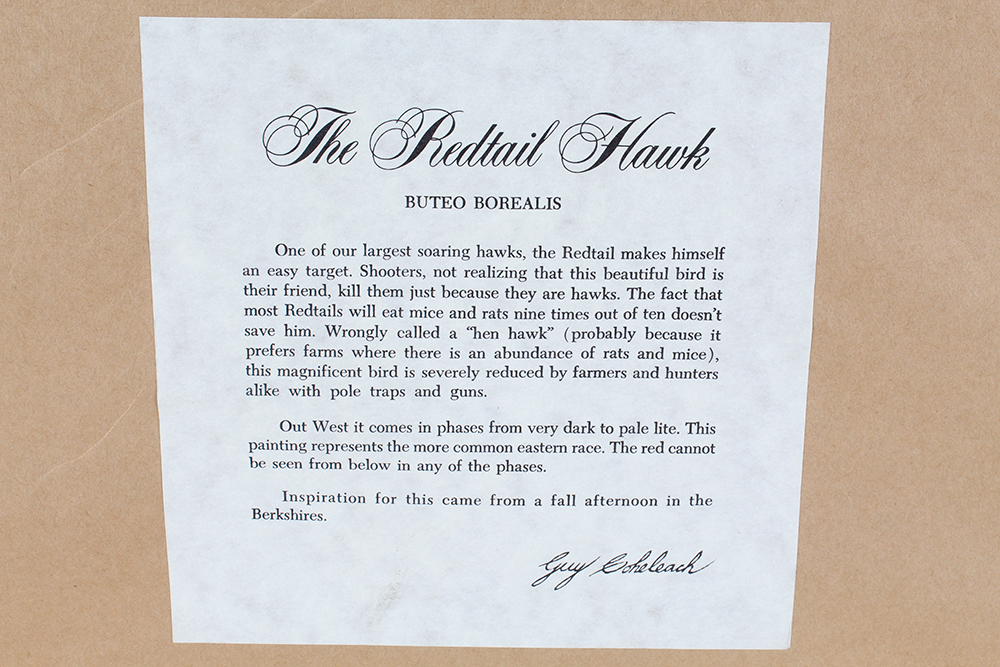 The Redtail Hawk
BUTEO BOREALIS
One of our largest soaring hawks, the Redtail makes himself
an easy target. Shooters, not realizing that this beautiful bird is
their friend, kill them just because they are hawks. The fact that
most Redtails will eat mice and rats nine times out of ten doesn't
save him. Wrongly called a “hen hawk” (probably because it
prefers farms where there is an abundance of rats and mice),
this magnificent bird is severely reduced by farmers and hunters
alike with pole traps and guns.
Out West it comes in phases from very dark to pale lite. This
painting represents the more common eastern race. The red cannot
be seen from below in any of the phases.
Inspiration for this came from a fall afternoon in the
Berkshires.
Guy Coheleach